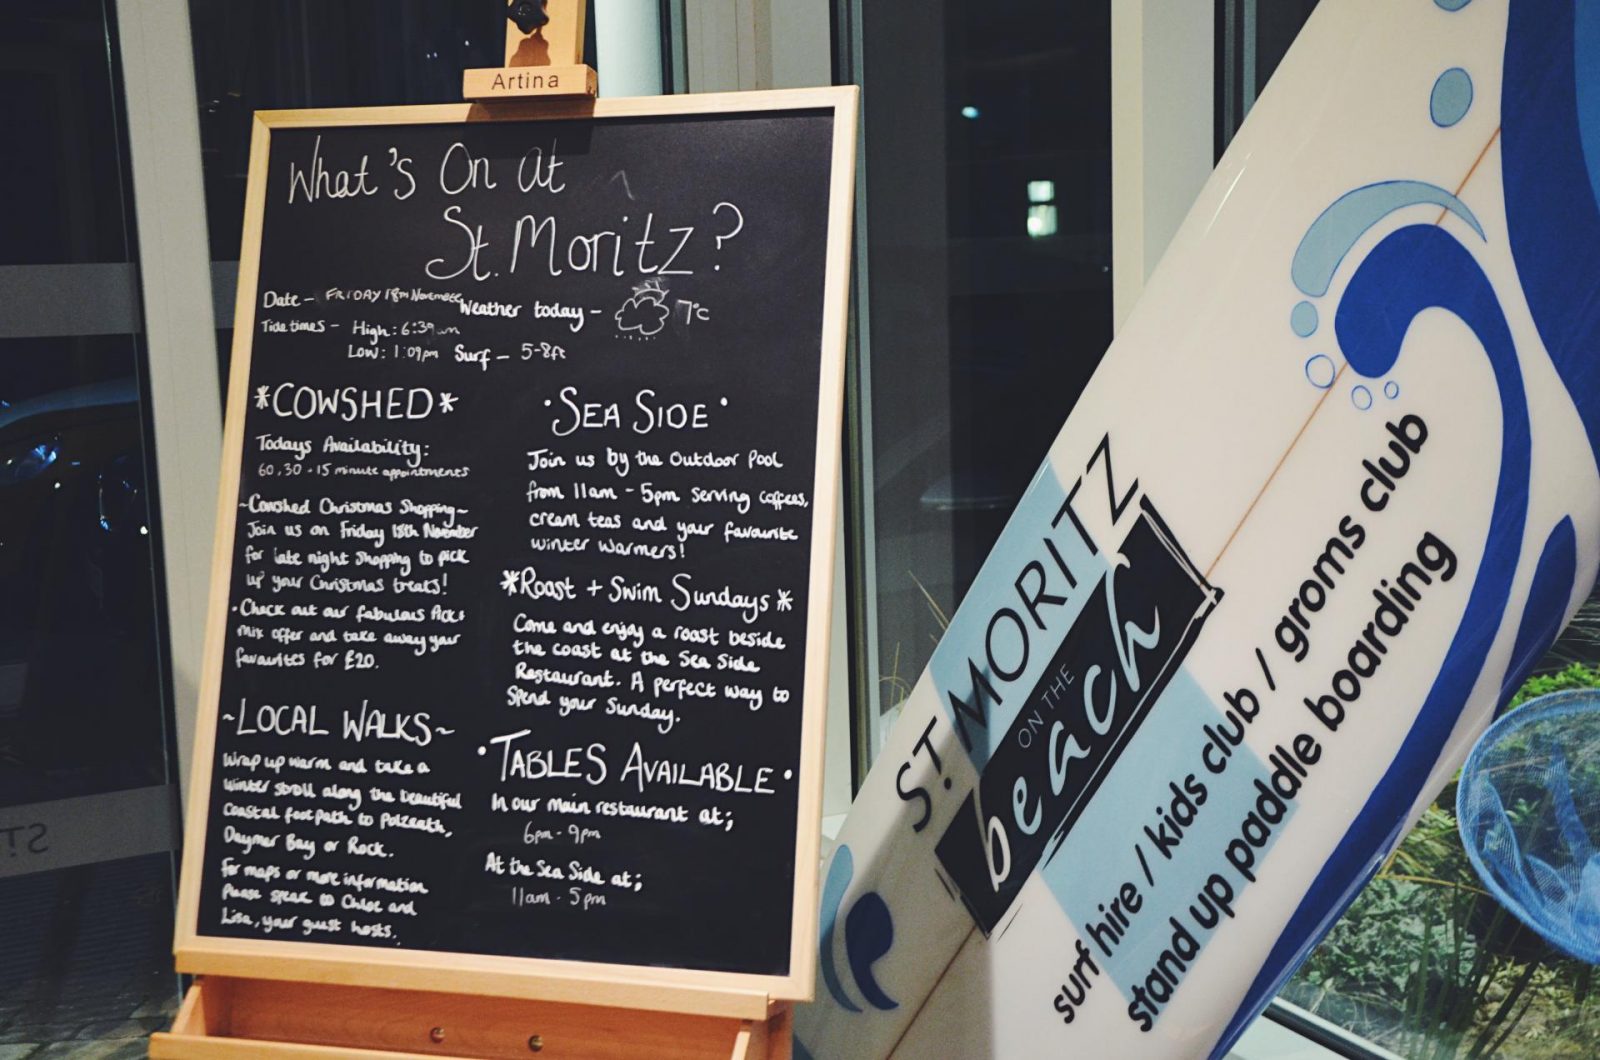 Artina
What's On at
St. Moritz?
Date - FRIDAY 18TH November Weather today - 7°c
Tide times - High: 6:39am
Low: 1:09pm Surf - 5-8ft
*COWSHED*
Todays Availability:
60, 30 + 15 minute appointments
~Cowshed Christmas Shopping~
Join us on Friday 18th November
for late night shopping to pick
up your Christmas treats!
• Check out our fabulous Pick +
mix offer and take away your
favourites for £20.
~LOCAL WALKS~
Wrap up warm and take a
winter stroll along the beautiful
coastal footpath to Polzeath,
Daymer Bay or Rock.
For maps or more information
Please speak to Chloe and
Lisa, your guest hosts.
• SEA SIDE •
Join us by the Outdoor Pool
from 11am - 5pm serving coffees,
cream teas and your favourite
winter warmers!
*Roast + Swim Sundays*
Come and enjoy a roast beside
the coast at the Sea Side
Restaurant. A perfect way to
spend your Sunday.
• TABLES AVAILABLE •
In our main restaurant at;
6pm - 9pm
At the Sea Side at;
11am - 5pm
ST. MORITZ
ON THE
beach
surf hire / kids club / groms club
stand up paddle boarding
ST.